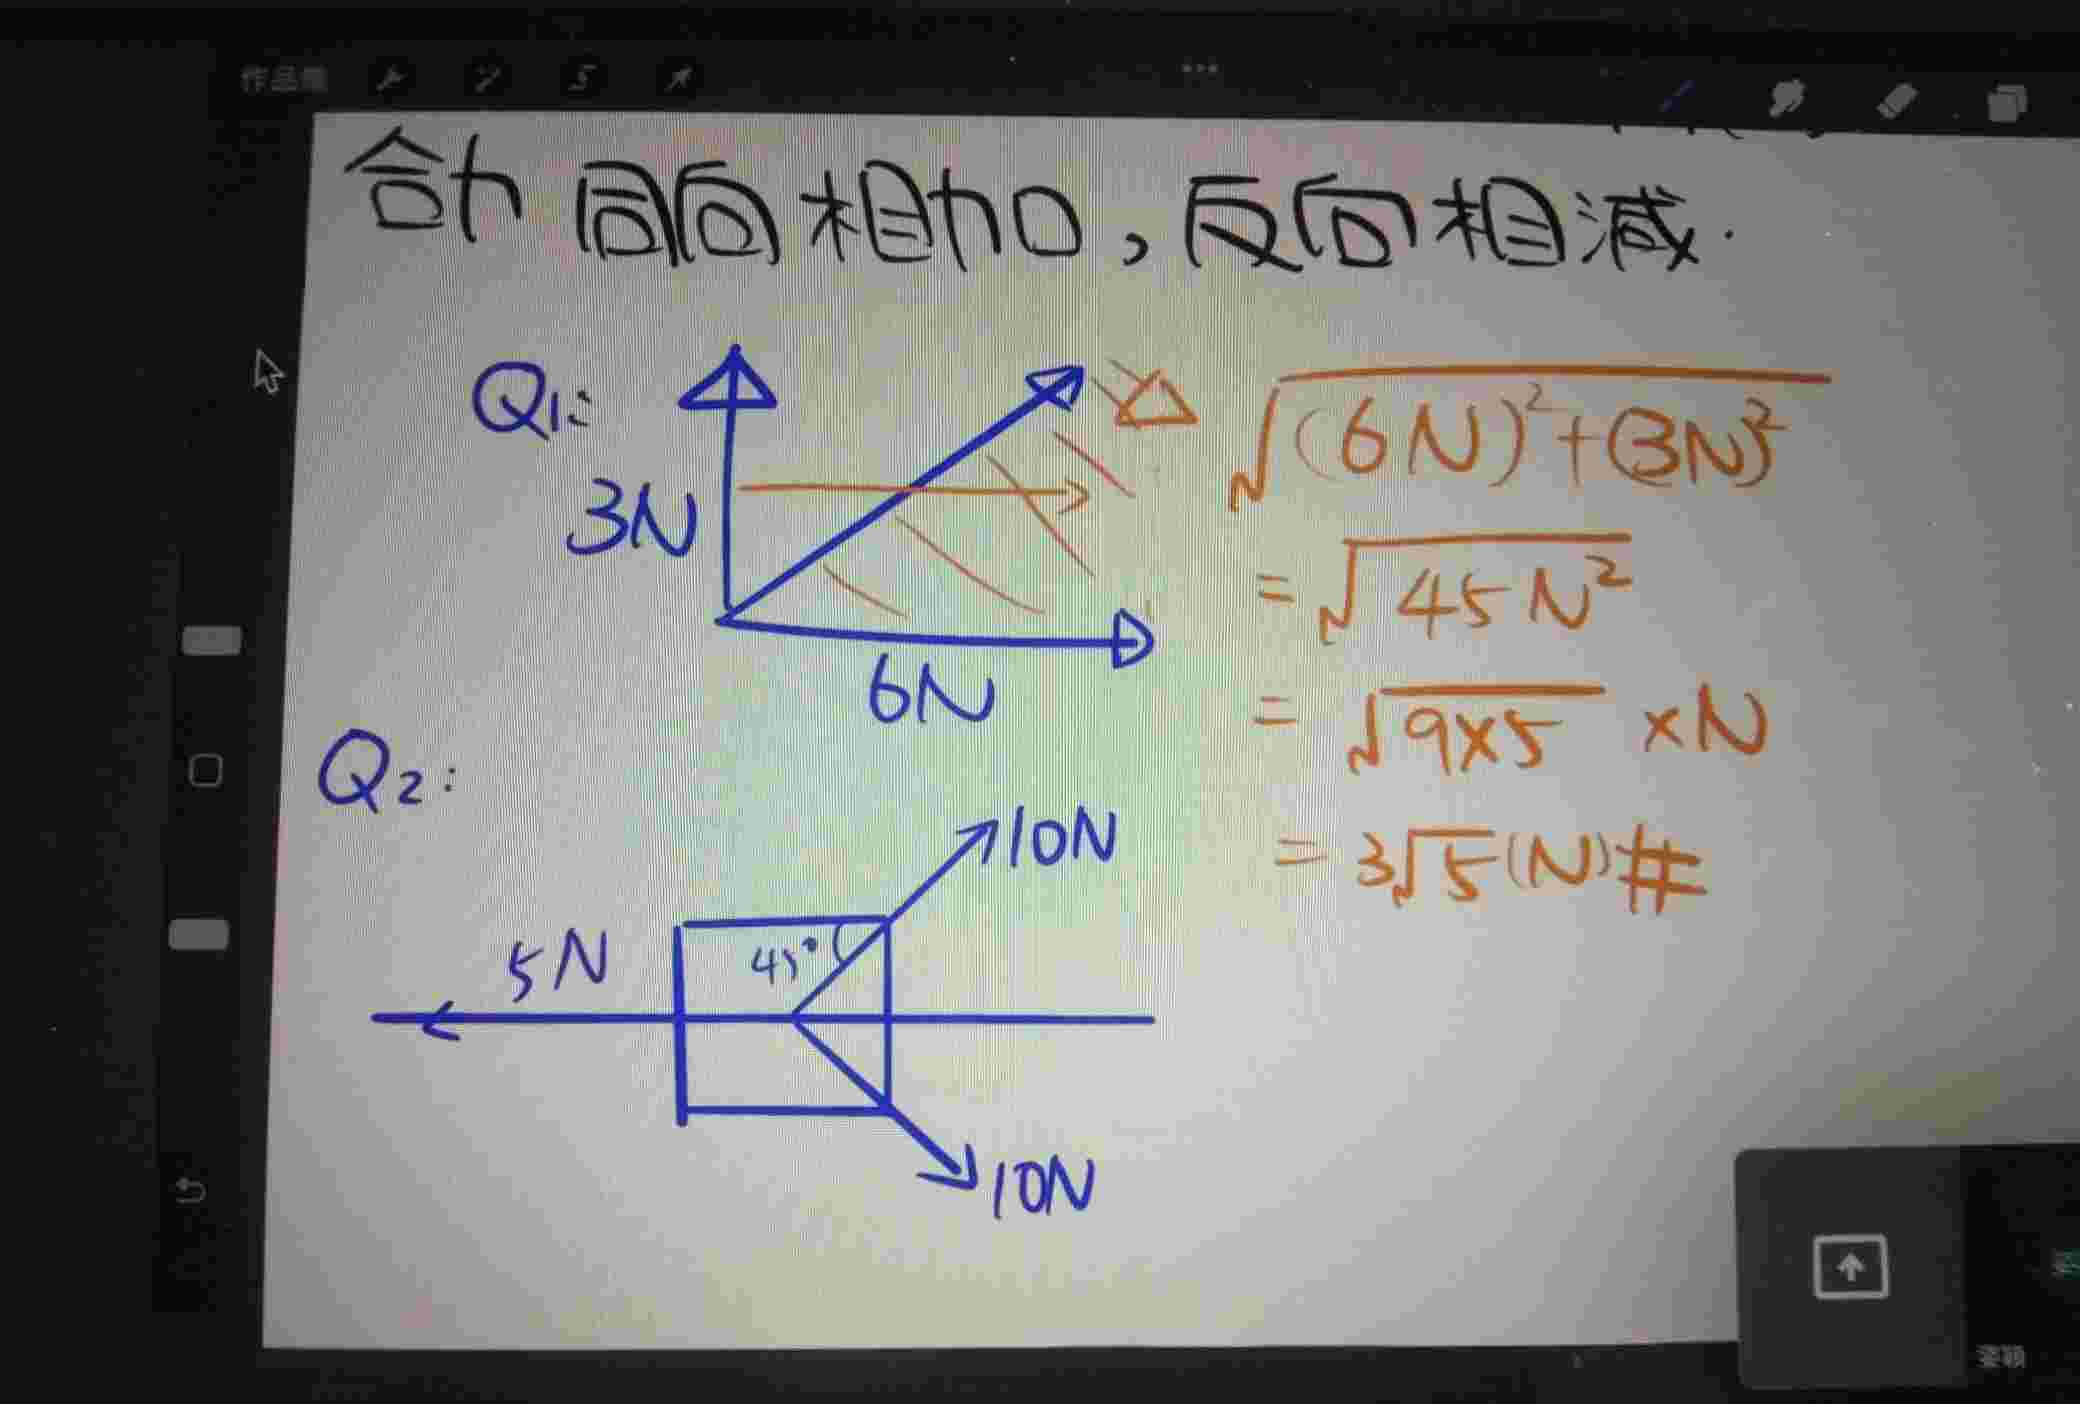 作品集
合力 同向相加，反向相減．
Q1:
3N
6N
√(6N)²+(3N)²
=√45N²
=√9×5 ×N
=3√5(N)#
Q2:
10N
45°
5N
10N